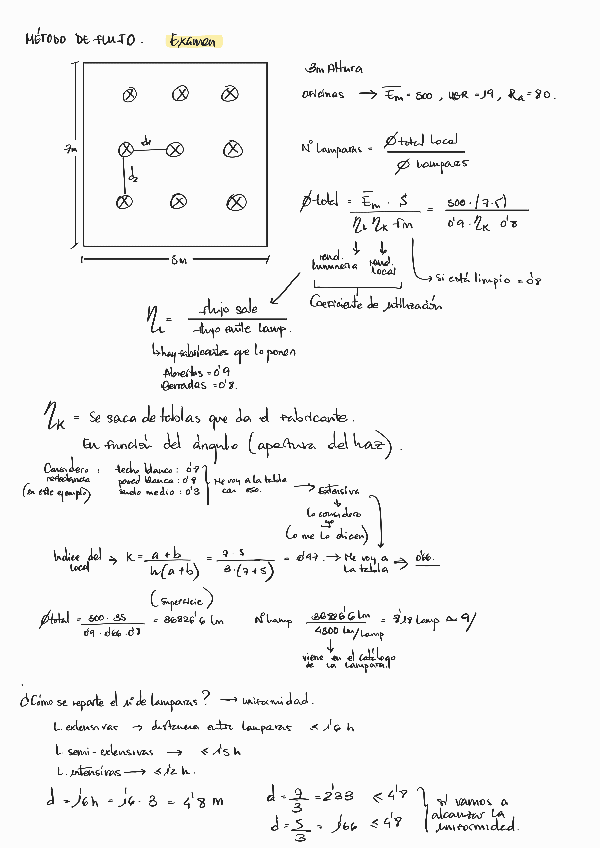 MÉTODO DE FLUJO. Examen
3m Altura
Oficinas → Em = 500, UGR = 19, Ra = 80.
7m
d1
d2
5m
Nº Lamparas = Φtotal Local / Φ Lampars
Φtotal = Em · S / ηL ηK fm = 500 · (7·5) / 0'9 · ηK 0'8
rend. luminaria
rend. Local
Si está limpio = 0'8
Coeficiente de utilización
ηL = flujo sale / flujo emite lamp.
↳ hay fabricantes que lo ponen
Abiertas = 0'9
Cerradas = 0'8.
ηK = Se saca de tablas que da el fabricante.
En función del ángulo (apertura del haz).
Considero reflectancia (en este ejemplo) :
techo blanco : 0'8
pared blanca : 0'8
suelo medio : 0'3
Me voy a la tabla con eso.
→ Extensiva
↓
lo considero yo
(o me lo dicen)
Indice del local → K = a + b / h(a+b) = 7 · 5 / 3·(7+5) = 0'97 → Me voy a la tabla → 0'66.
(Superficie)
Φtotal = 500 · 35 / 0'9 · 0'66 · 0'8 = 36826'6 lm
Nº Lamp 36826'6 lm / 4500 lm/lamp = 8'18 lamp ≈ 9/
viene en el catálogo de la lampara.
¿Cómo se reparte el nº de lamparas? → uniformidad.
L. extensivas → distancia entre lamparas ≤ 1'6 h
L semi-extensivas → ≤ 1'5 h
L. intensivas → ≤ 1'2 h.
d = 1'6 h = 1'6 · 3 = 4'8 m
d = 7/3 = 2'33 ≤ 4'8
d = 5/3 = 1'66 ≤ 4'8
sí vamos a alcanzar la uniformidad.